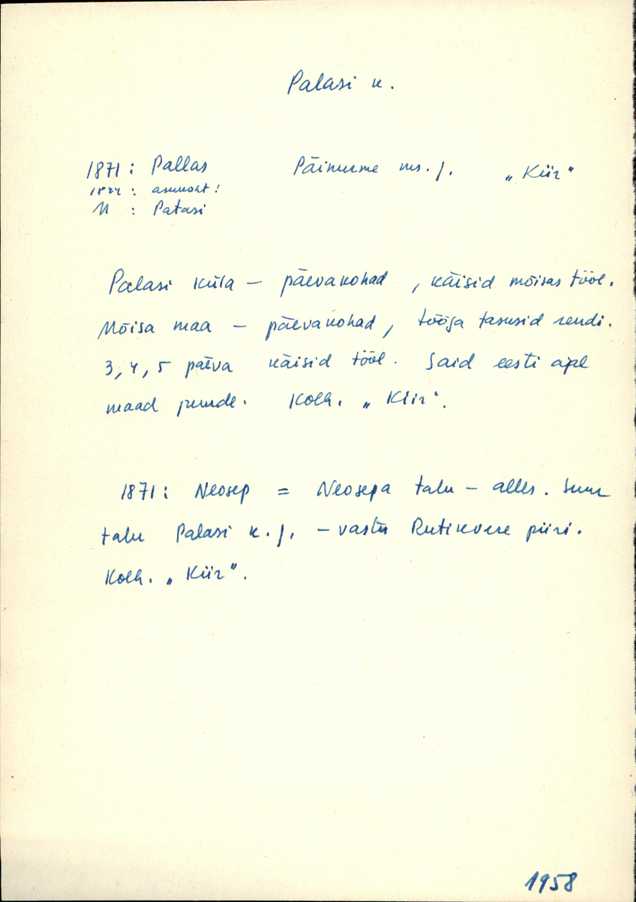 Palasi k.
1871: Pallas Päinurme ms. j. „Kiir"
ammost!
M : Patasi
Palasi küla — päevakohad, käisid mõisas tööl.
Mõisa maa — päevakohad, tööga tasusid rendi.
3, 4, 5 päeva käisid tööl. Said eesti ajal
maad juurde. Kolh. „Kiir".
1871: Neosep = Neosepa talu — alles. Suur
talu Palasi k. j. — vastu Rutikvere piiri.
Kolh. „Kiir".
1958